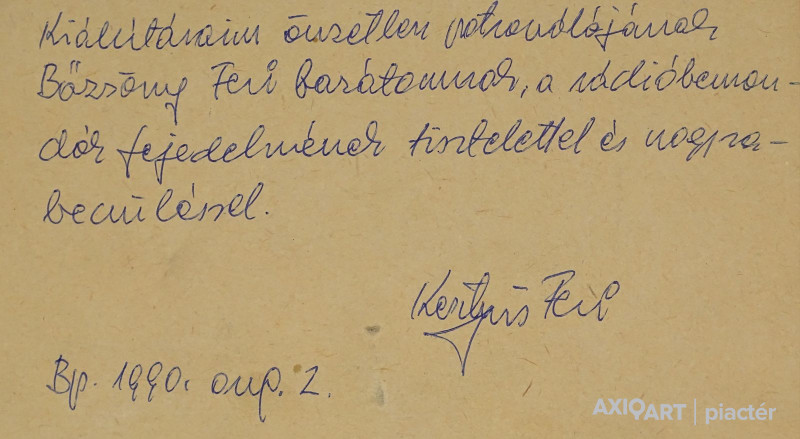 Kiállításaim önzetlen patronálójának
Bőzsöny Feri barátomnak, a rádióbemon-
dók fejedelmének tisztelettel és nagyra-
becsüléssel.
Feri
Bp. 1990. aug. 2.
AXIOART | piactér